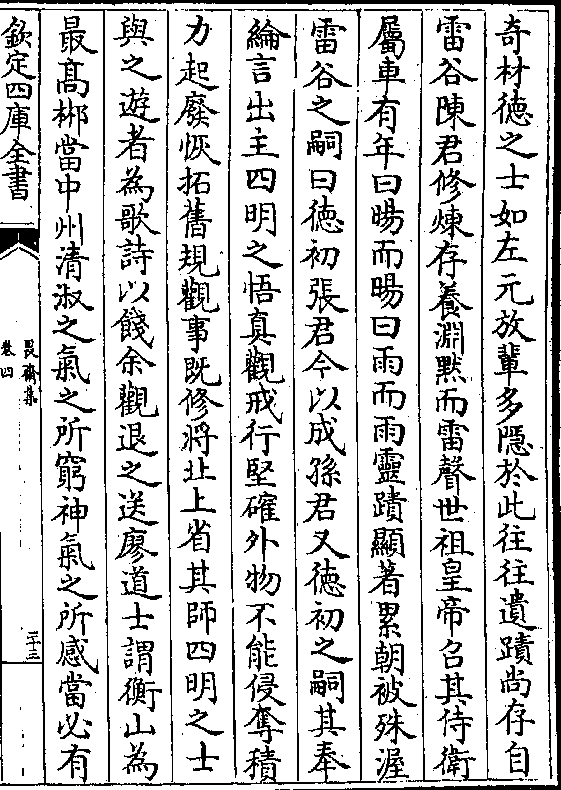 奇材徳之士如左元放輩多隠於此往往遺蹟尚存自
雷谷陳君修煉存養淵黙而雷聲世祖皇帝召其侍衛
屬車有年曰暘而暘曰雨而雨靈蹟顯著累朝被殊渥
雷谷之嗣曰徳初張君今以成孫君又徳初之嗣其奉
綸言出主四明之悟真觀戒行堅確外物不能侵奪積
力起廢恢拓舊規觀事既修將北上省其師四明之士
與之遊者為歌詩以餞余觀退之送廖道士謂衡山為
最髙郴當中州清淑之氣之所窮神氣之所感當必有
欽定四庫全書
畏齋集
卷四
二十三